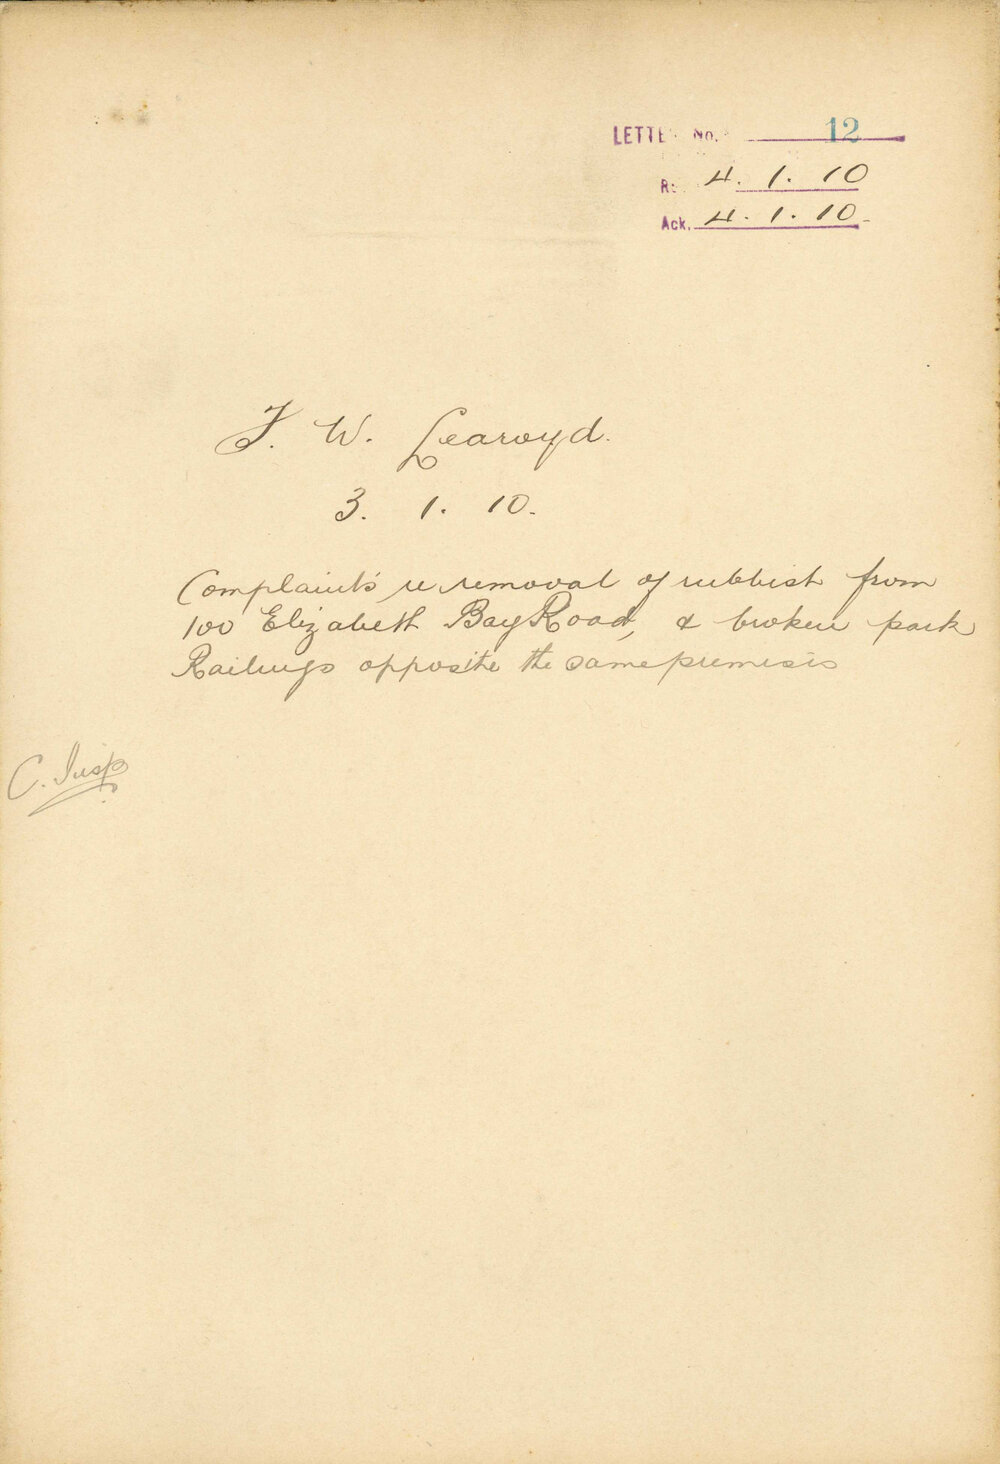 LETTE No. 12
R 4. 1. 10
Ack. 4. 1. 10.
F. W. Learoyd.
3. 1. 10.
Complaints re removal of rubbish from
100 Elizabeth Bay Road, & broken park
Railings opposite the same premises
C. Insp